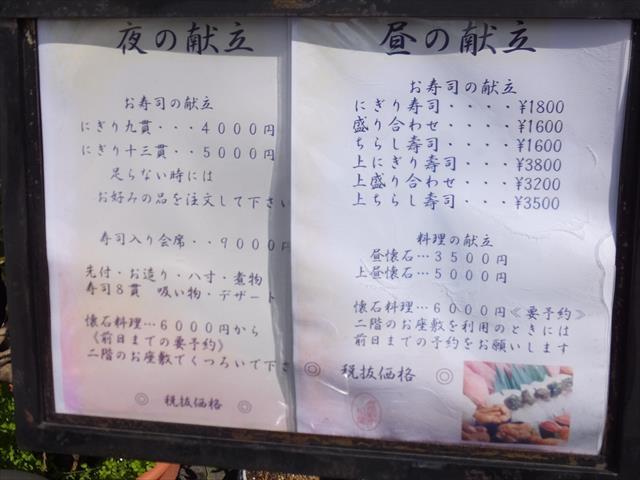 夜の献立
お寿司の献立
にぎり九貫・・・４０００円
にぎり十三貫・・５０００円
足らない時には
お好みの品を注文して下さい
寿司入り会席・・９０００円
先付・お造り・八寸・煮物
寿司８貫 吸い物・デザート
懐石料理…６０００円から
《前日までの要予約》
二階のお座敷でくつろいで下さ
◎ 税抜価格 ◎
昼の献立
お寿司の献立
にぎり寿司・・・・¥1800
盛り合わせ・・・・¥1600
ちらし寿司・・・・¥1600
上にぎり寿司・・・¥3800
上盛り合わせ・・・¥3200
上ちらし寿司・・・¥3500
料理の献立
昼懐石…３５００円
上昼懐石…５０００円
懐石料理…６０００円《要予約》
二階のお座敷を利用のときには
前日までの予約をお願いします
◎ 税抜価格 ◎